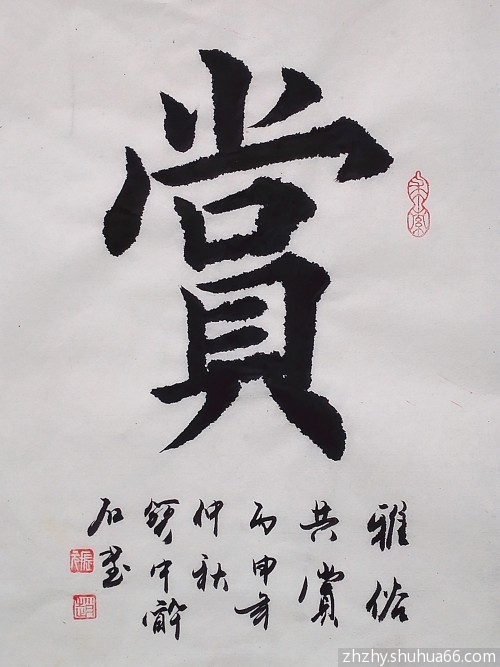 賞
雅俗
共賞
丙申年
仲秋
中
石書
zhzhyshuhua66.com